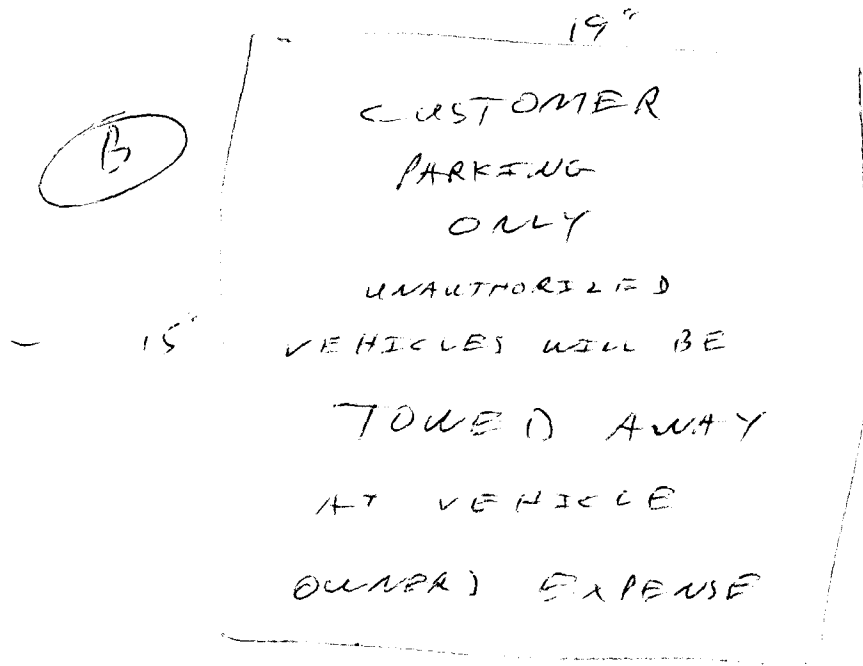 19"
B
CUSTOMER
PARKING
ONLY
UNAUTHORIZED
15" VEHICLES WILL BE
TOWED AWAY
AT VEHICLE
OWNERS EXPENSE